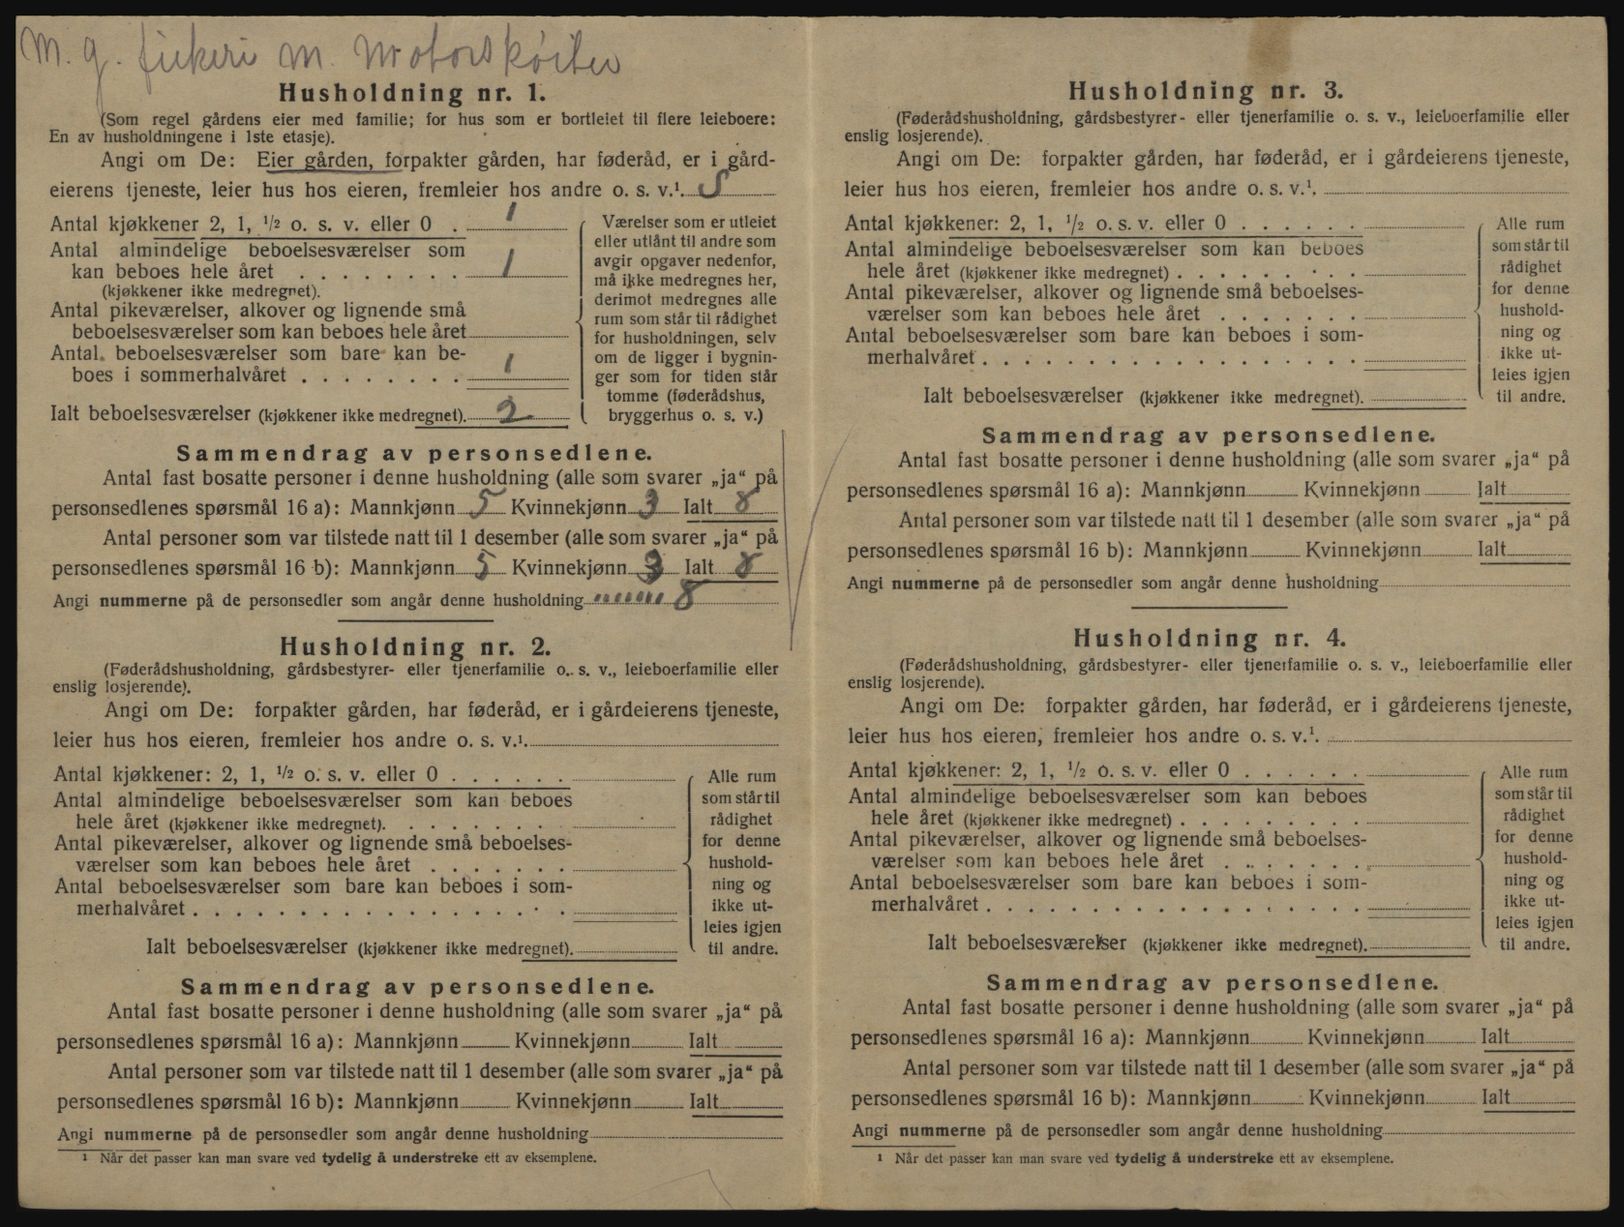 M. g. fiskeri m. Motorskøiter
Husholdning nr. 1.
(Som regel gårdens eier med familie; for hus som er bortleiet til flere leieboere:
En av husholdningene i 1ste etasje).
Angi om De: Eier gården, forpakter gården, har føderåd, er i gård-
eierens tjeneste, leier hus hos eieren, fremleier hos andre o. s. v.¹. S
Antal kjøkkener 2, 1, ½ o. s. v. eller 0 . 1
Antal almindelige beboelsesværelser som
kan beboes hele året . . . . . . . . 1
(kjøkkener ikke medregnet).
Antal pikeværelser, alkover og lignende små
beboelsesværelser som kan beboes hele året
Antal beboelsesværelser som bare kan be-
boes i sommerhalvåret . . . . . . . . 1
Ialt beboelsesværelser (kjøkkener ikke medregnet). 2
Værelser som er utleiet
eller utlånt til andre som
avgir opgaver nedenfor,
må ikke medregnes her,
derimot medregnes alle
rum som står til rådighet
for husholdningen, selv
om de ligger i bygnin-
ger som for tiden står
tomme (føderådshus,
bryggerhus o. s. v.)
Sammendrag av personsedlene.
Antal fast bosatte personer i denne husholdning (alle som svarer „ja“ på
personsedlenes spørsmål 16 a): Mannkjønn 5 Kvinnekjønn 3 Ialt 8
Antal personer som var tilstede natt til 1 desember (alle som svarer „ja“ på
personsedlenes spørsmål 16 b): Mannkjønn 5 Kvinnekjønn 3 Ialt 8
Angi nummerne på de personsedler som angår denne husholdning """"""" 8
Husholdning nr. 2.
(Føderådshusholdning, gårdsbestyrer- eller tjenerfamilie o. s. v., leieboerfamilie eller
enslig losjerende).
Angi om De: forpakter gården, har føderåd, er i gårdeierens tjeneste,
leier hus hos eieren, fremleier hos andre o. s. v.¹.
Antal kjøkkener: 2, 1, ½ o. s. v. eller 0 . . . . . .
Antal almindelige beboelsesværelser som kan beboes
hele året (kjøkkener ikke medregnet). . . . . . . . .
Antal pikeværelser, alkover og lignende små beboelses-
værelser som kan beboes hele året . . . . . . .
Antal beboelsesværelser som bare kan beboes i som-
merhalvåret . . . . . . . . . . . . . . . . . .
Ialt beboelsesværelser (kjøkkener ikke medregnet).
Alle rum
som står til
rådighet
for denne
hushold-
ning og
ikke ut-
leies igjen
til andre.
Sammendrag av personsedlene.
Antal fast bosatte personer i denne husholdning (alle som svarer „ja“ på
personsedlenes spørsmål 16 a): Mannkjønn Kvinnekjønn Ialt
Antal personer som var tilstede natt til 1 desember (alle som svarer „ja“ på
personsedlenes spørsmål 16 b): Mannkjønn Kvinnekjønn Ialt
Angi nummerne på de personsedler som angår denne husholdning
¹ Når det passer kan man svare ved tydelig å understreke ett av eksemplene.
Husholdning nr. 3.
(Føderådshusholdning, gårdsbestyrer- eller tjenerfamilie o. s. v., leieboerfamilie eller
enslig losjerende).
Angi om De: forpakter gården, har føderåd, er i gårdeierens tjeneste,
leier hus hos eieren, fremleier hos andre o. s. v.¹.
Antal kjøkkener: 2, 1, ½ o. s. v. eller 0 . . . . . .
Antal almindelige beboelsesværelser som kan beboes
hele året (kjøkkener ikke medregnet) . . . . . . . . .
Antal pikeværelser, alkover og lignende små beboelses-
værelser som kan beboes hele året . . . . . . .
Antal beboelsesværelser som bare kan beboes i som-
merhalvåret . . . . . . . . . . . . . . . . . .
Ialt beboelsesværelser (kjøkkener ikke medregnet).
Alle rum
som står til
rådighet
for denne
hushold-
ning og
ikke ut-
leies igjen
til andre.
Sammendrag av personsedlene.
Antal fast bosatte personer i denne husholdning (alle som svarer „ja“ på
personsedlenes spørsmål 16 a): Mannkjønn Kvinnekjønn Ialt
Antal personer som var tilstede natt til 1 desember (alle som svarer „ja“ på
personsedlenes spørsmål 16 b): Mannkjønn Kvinnekjønn Ialt
Angi nummerne på de personsedler som angår denne husholdning
Husholdning nr. 4.
(Føderådshusholdning, gårdsbestyrer- eller tjenerfamilie o. s. v., leieboerfamilie eller
enslig losjerende).
Angi om De: forpakter gården, har føderåd, er i gårdeierens tjeneste,
leier hus hos eieren, fremleier hos andre o. s. v.¹.
Antal kjøkkener: 2, 1, ½ o. s. v. eller 0 . . . . . .
Antal almindelige beboelsesværelser som kan beboes
hele året (kjøkkener ikke medregnet) . . . . . . . . .
Antal pikeværelser, alkover og lignende små beboelses-
værelser som kan beboes hele året . . . . . . .
Antal beboelsesværelser som bare kan beboes i som-
merhalvåret . . . . . . . . . . . . . . . . . .
Ialt beboelsesværelser (kjøkkener ikke medregnet).
Alle rum
som står til
rådighet
for denne
hushold-
ning og
ikke ut-
leies igjen
til andre.
Sammendrag av personsedlene.
Antal fast bosatte personer i denne husholdning (alle som svarer „ja“ på
personsedlenes spørsmål 16 a): Mannkjønn Kvinnekjønn Ialt
Antal personer som var tilstede natt til 1 desember (alle som svarer „ja“ på
personsedlenes spørsmål 16 b): Mannkjønn Kvinnekjønn Ialt
Angi nummerne på de personsedler som angår denne husholdning
¹ Når det passer kan man svare ved tydelig å understreke ett av eksemplene.